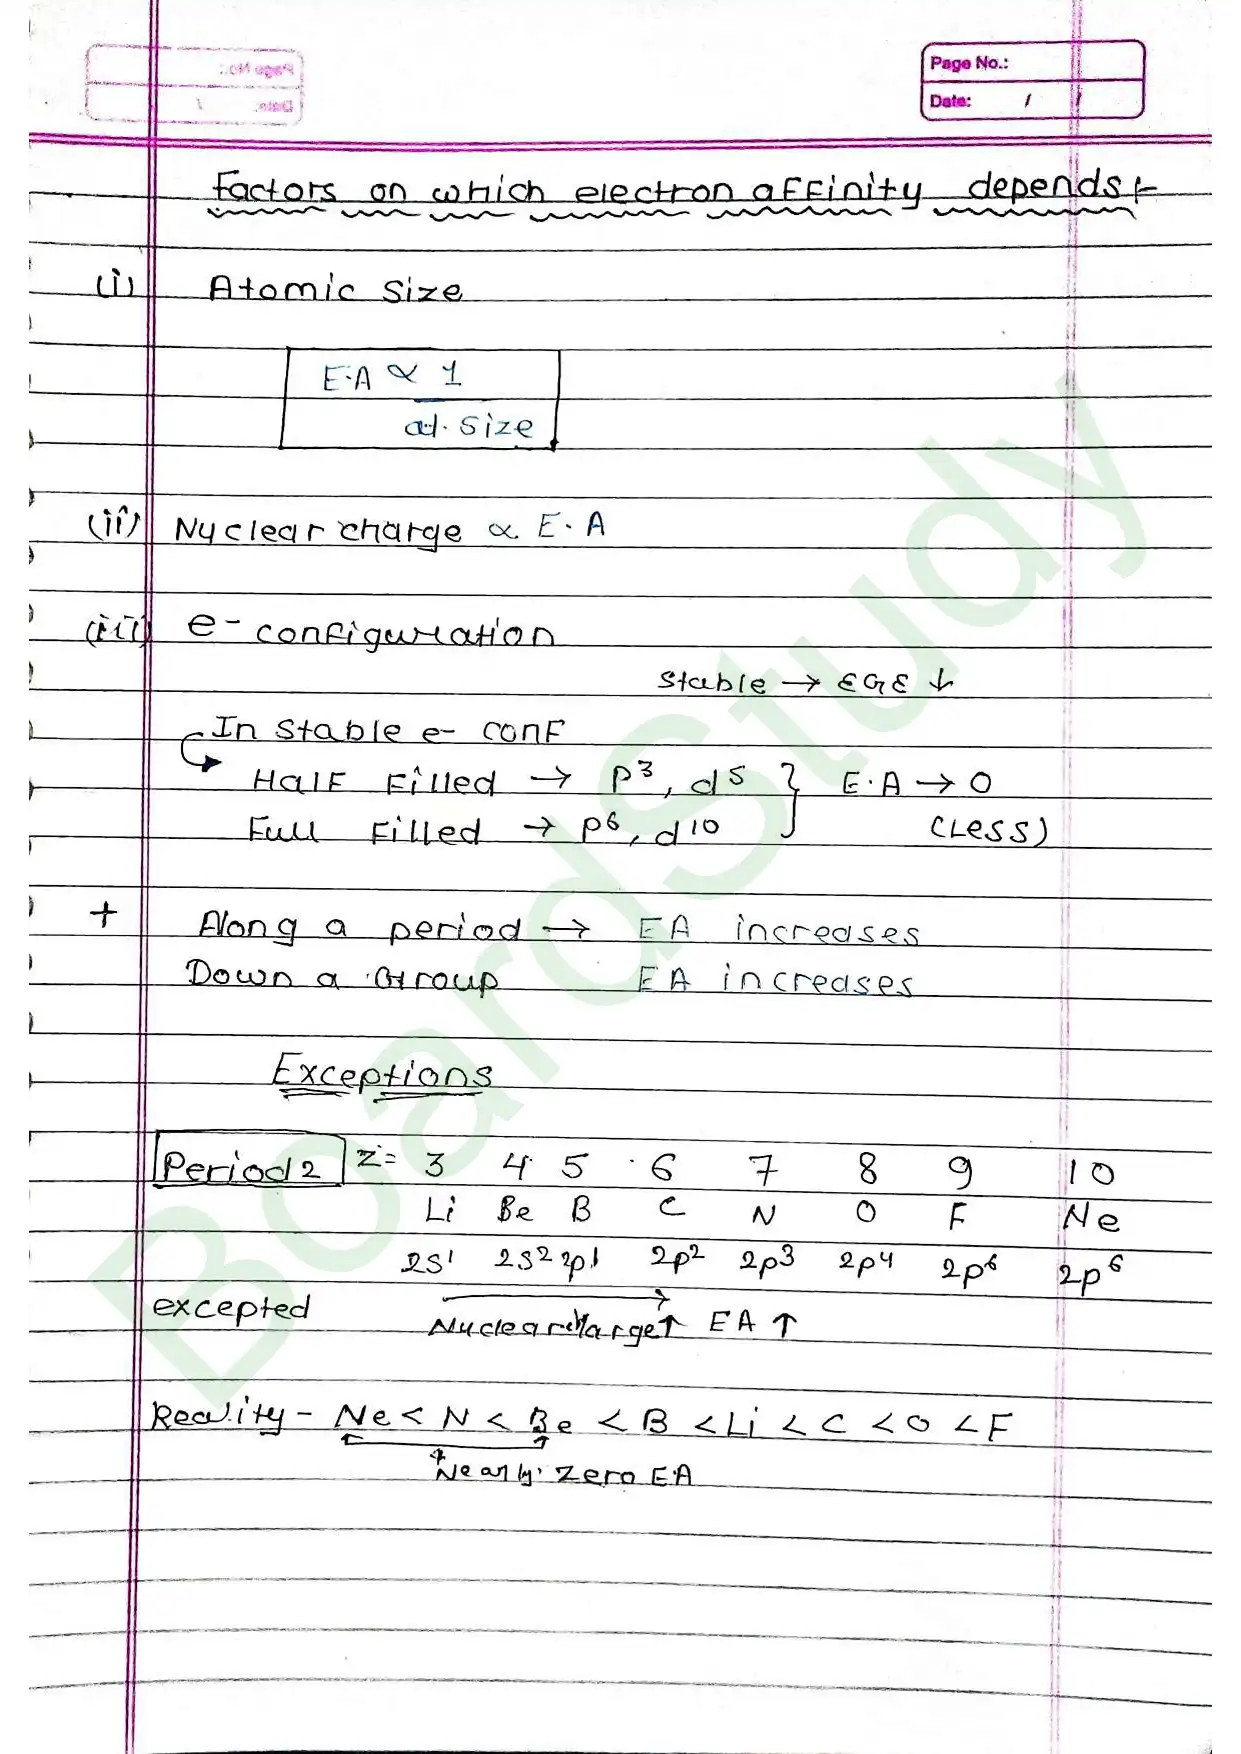 Page No.:
Date: / /
Factors on which electron affinity depends :-
(i) Atomic Size
E.A ∝ 1
at. size
(ii) Nuclear charge ∝ E.A
(iii) e- configuration
Stable → EGE ↓
In stable e- conf
Half Filled → p³, d⁵ } E.A → 0
Full Filled → p⁶, d¹⁰ (Less)
+ Along a period → EA increases
Down a Group EA increases
Exceptions
Period 2 Z = 3 4 5 6 7 8 9 10
Li Be B C N O F Ne
2s¹ 2s² 2p¹ 2p² 2p³ 2p⁴ 2p⁶ 2p⁶
excepted Nuclear charge ↑ EA ↑
Reality - Ne < N < Be < B < Li < C < O < F
Nearly zero EA
BoardStudy